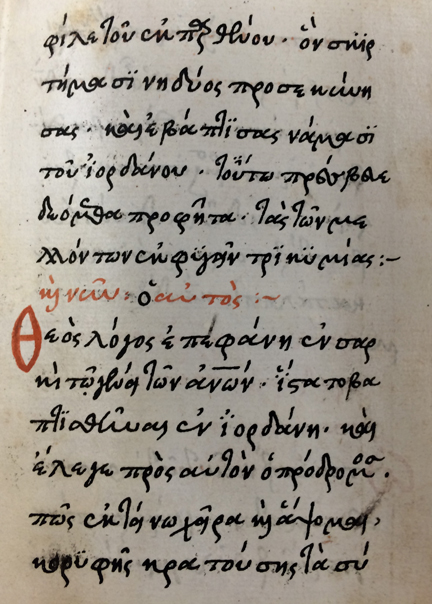 φίλε τοῦ ἐκ παρθένου· ὃν σκιρ
τήμασϊ νηδύος προσεκύνη
σας· καὶ ἐβάπτϊσας νάμασϊ
τοῦ ϊορδάνου· τοῦτω πρέσβευε
δεόμεθα προφῆτα· τὰς τῶν με
λλόντων ἐκφυγεῖν τρϊκυμίας:~
καὶ νῦν· ὁ αὐτὸς:~
Θεὸς λόγος ἐπεφάνη ἐν σαρ
κὶ τῷ γένει τῶν ἀνων· ἵστατο βα
πτϊσθῆναι ἐν ϊορδάνη· καὶ
ἔλεγε πρὸς αὐτὸν ὁ πρόδρομος·
πῶς ἐκτείνω χεῖρα καὶ ἅψομαι,
κορϋφῆς κρατούσης τὰ σύ